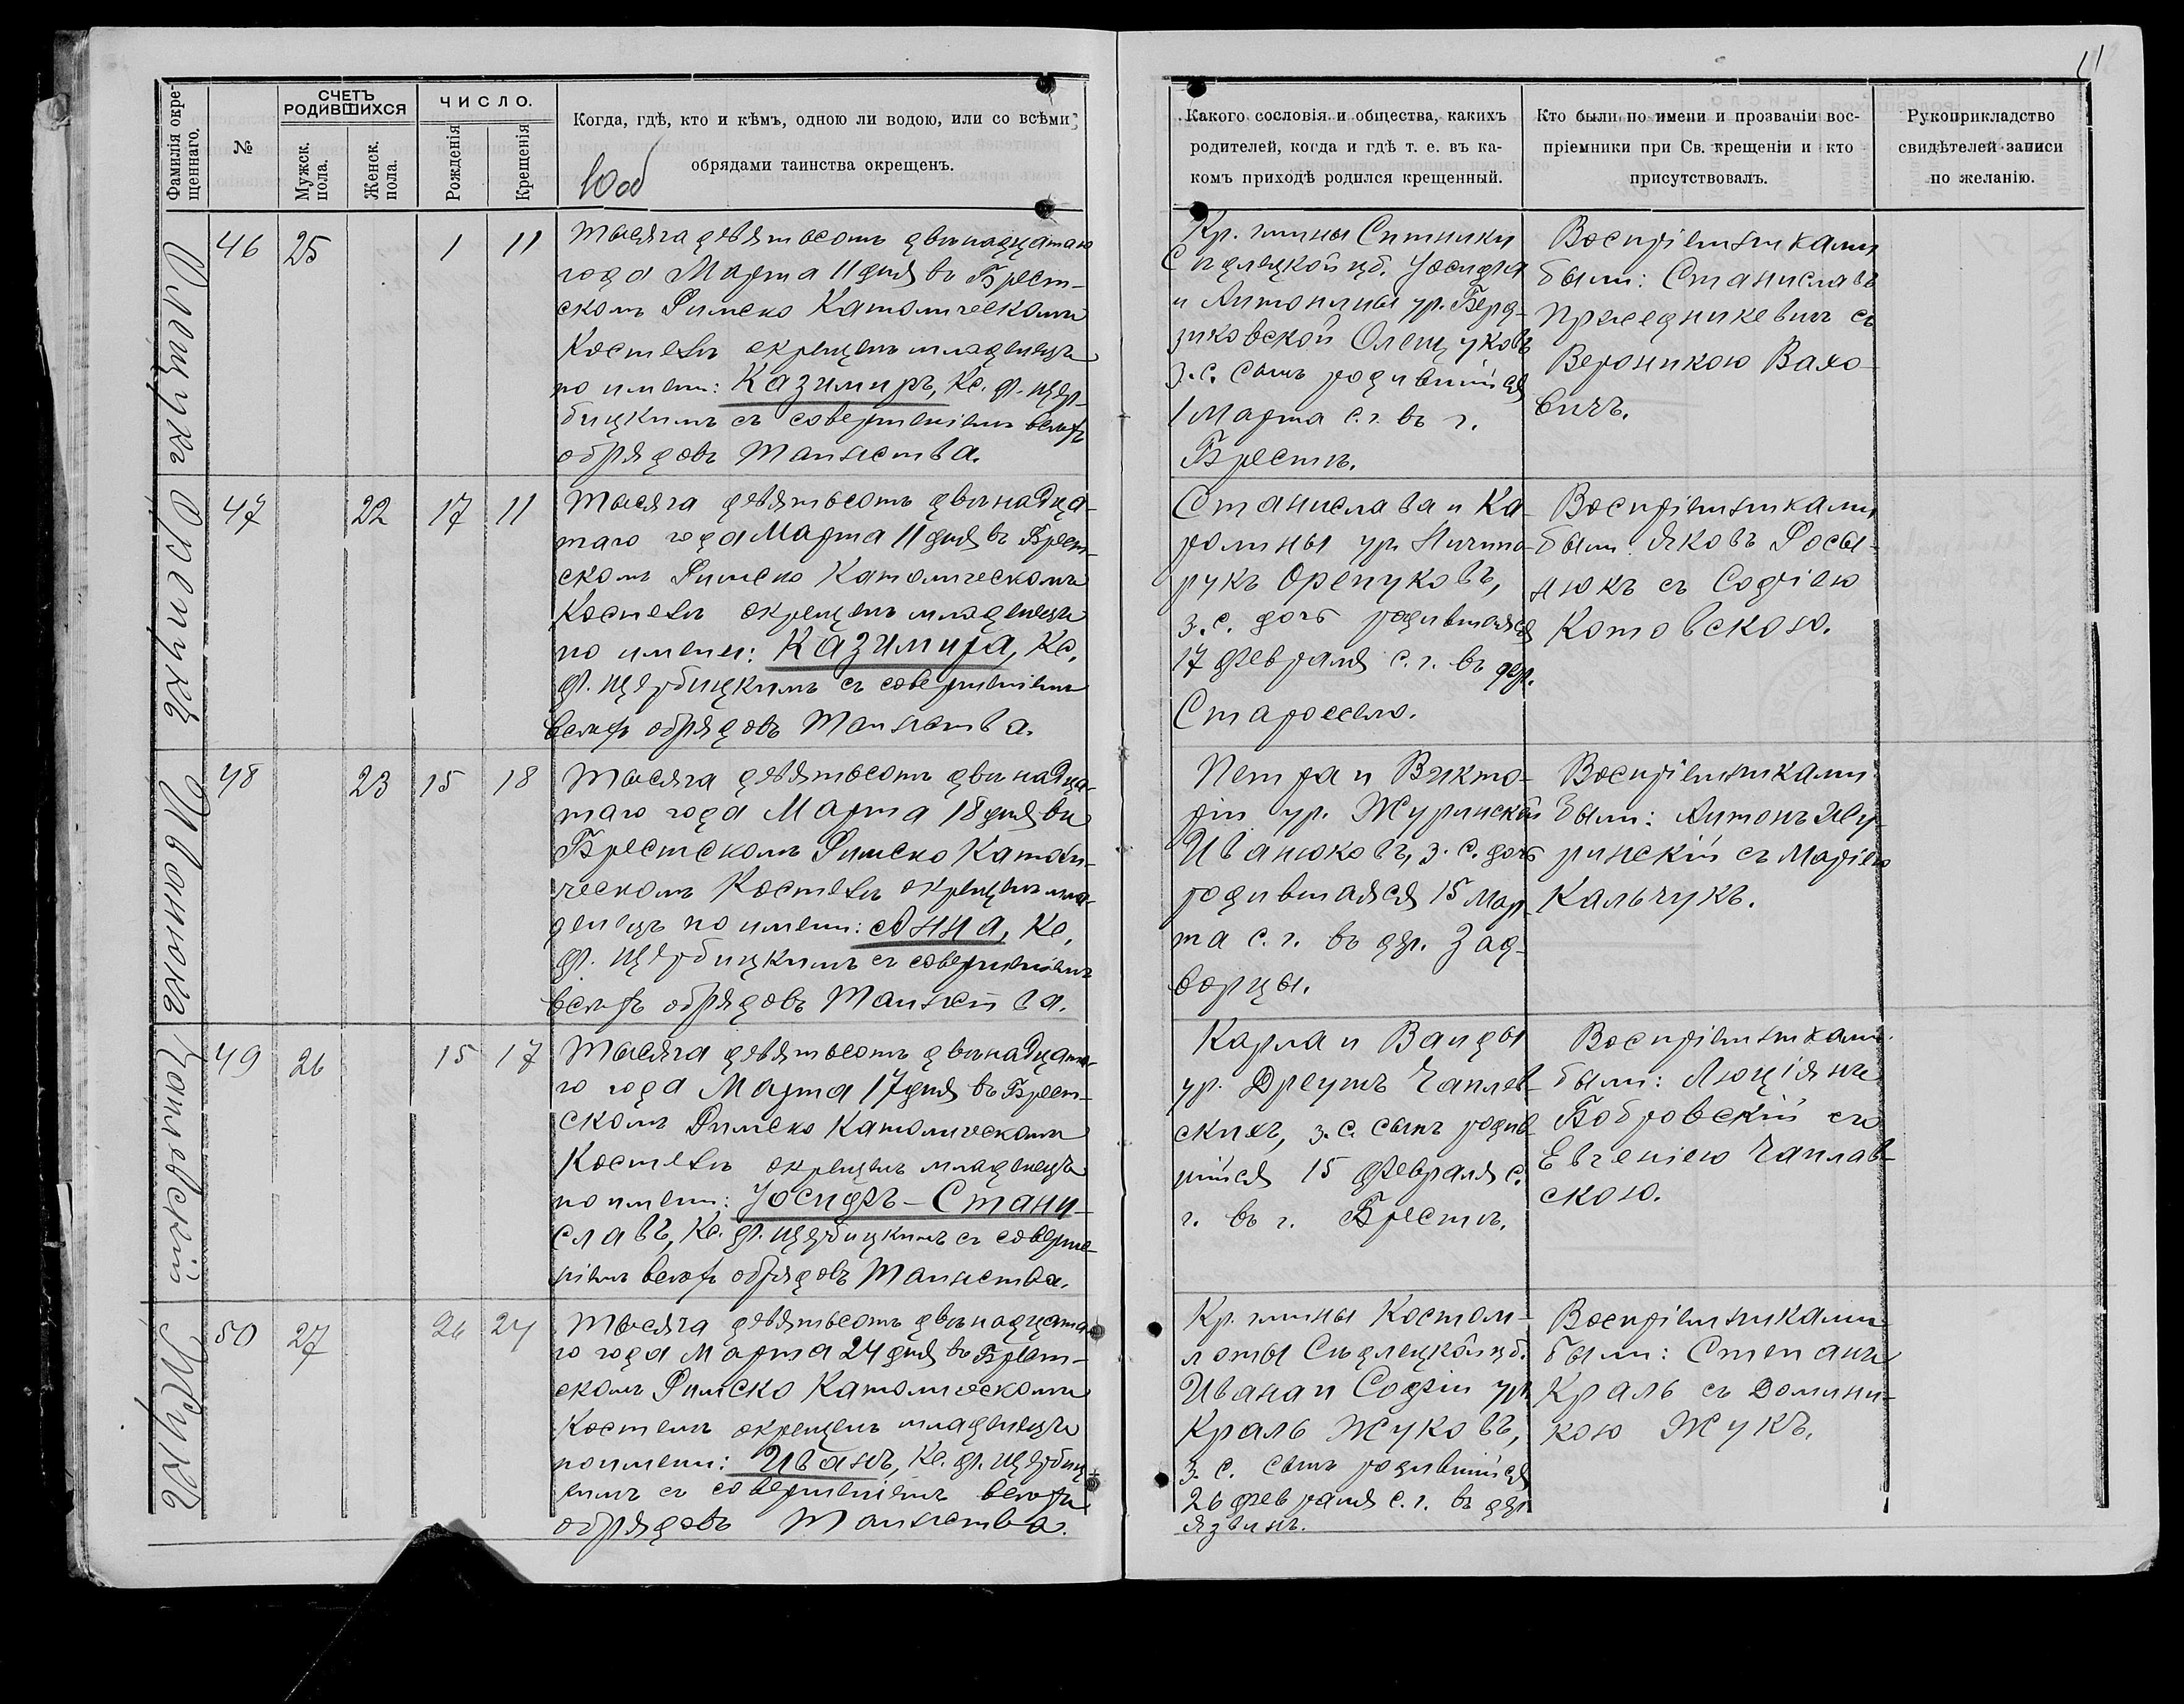 11
Фамилія окре-
щеннаго.
№
СЧЕТЪ
РОДИВШИХСЯ
Мужск.
пола.
Женск.
пола.
ЧИСЛО.
Рожденія
Крещенія
Когда, гдѣ, кто и кѣмъ, одною ли водою, или со всѣми
обрядами таинства окрещенъ.
Какого сословія и общества, какихъ
родителей, когда и гдѣ т. е. въ ка-
комъ приходѣ родился крещенный.
Кто были по имени и прозваніи вос-
пріемники при Св. крещеніи и кто
присутствовалъ.
Рукоприкладство
свидѣтелей записи
по желанію.
Олещукъ
46 25 1 11
Тысяча девятьсотъ двѣнадцатаго
года Марта 11 дня въ Брест-
скомъ Римско Католическомъ
Костелѣ окрещенъ младенецъ
по имени: Казимиръ, Кс. Ф. Щер-
бицкимъ съ совершеніемъ всѣхъ
обрядовъ Таинства.
Кр. гмины Ситники
Сѣдлецкой губ. Іосифа
и Антонины ур. Берд-
зиковской Олещуковъ
з. с. сынъ родившійся
1 Марта с. г. въ г.
Брестѣ.
Воспріемниками
были: Станиславъ
Пржедникевичъ съ
Вероникою Вахо-
вичъ.
Орепукъ
47 22 17 11
Тысяча девятьсотъ двѣнадца-
таго года Марта 11 дня въ Брест-
скомъ Римско Католическомъ
Костелѣ окрещенъ младенецъ
по имени: Казимира, Кс.
Ф. Щербицкимъ съ совершеніемъ
всѣхъ обрядовъ Таинства.
Станислава и Ка-
ролины ур. Ничипо-
рукъ Орепуковъ,
з. с. дочь родившаяся
17 Февраля с. г. въ дер.
Старосело.
Воспріемниками
были: Яковъ Росы-
нюкъ съ Софіею
Котовскою.
Иванюкъ
48 23 15 18
Тысяча девятьсотъ двѣнадца-
таго года Марта 18 дня въ
Брестскомъ Римско Католи-
ческомъ Костелѣ окрещенъ мла-
денецъ по имени: Анна, Кс.
Ф. Щербицкимъ съ совершеніемъ
всѣхъ обрядовъ Таинства.
Петра и Викто-
ріи ур. Журинской
Иванюковъ, з. с. дочь
родившаяся 15 Мар-
та с. г. въ дер. Зад-
ворцы.
Воспріемниками
были: Антонъ Жу-
ринскій съ Маріею
Кальчукъ.
Чаплевскій
49 26 15 17
Тысяча девятьсотъ двѣнадцата-
го года Марта 17 дня въ Брест-
скомъ Римско Католическомъ
Костелѣ окрещенъ младенецъ
по имени: Іосифъ-Стани-
славъ, Кс. Ф. Щербицкимъ съ соверше-
ніемъ всѣхъ обрядовъ Таинства.
Карла и Ванды
ур. Дреушъ Чаплев-
скихъ, з. с. сынъ родив-
шійся 15 Февраля с.
г. въ г. Брестѣ.
Воспріемниками
были: Люціянъ
Бобровскій съ
Евгеніею Чаплев-
скою.
Жукъ
50 27 26 24
Тысяча девятьсотъ двѣнадцата-
го года Марта 24 дня въ Брест-
скомъ Римско Католическомъ
Костелѣ окрещенъ младенецъ
по имени: Иванъ, Кс. Ф. Щербиц-
кимъ съ совершеніемъ всѣхъ
обрядовъ Таинства.
Кр. гмины Костом-
лоты Сѣдлецкой губ.
Ивана и Софіи ур.
Краль Жуковъ,
з. с. сынъ родившійся
26 февраля с. г. въ дер.
Язвинъ.
Воспріемниками
были: Степанъ
Краль съ Домини-
кою Жукъ.